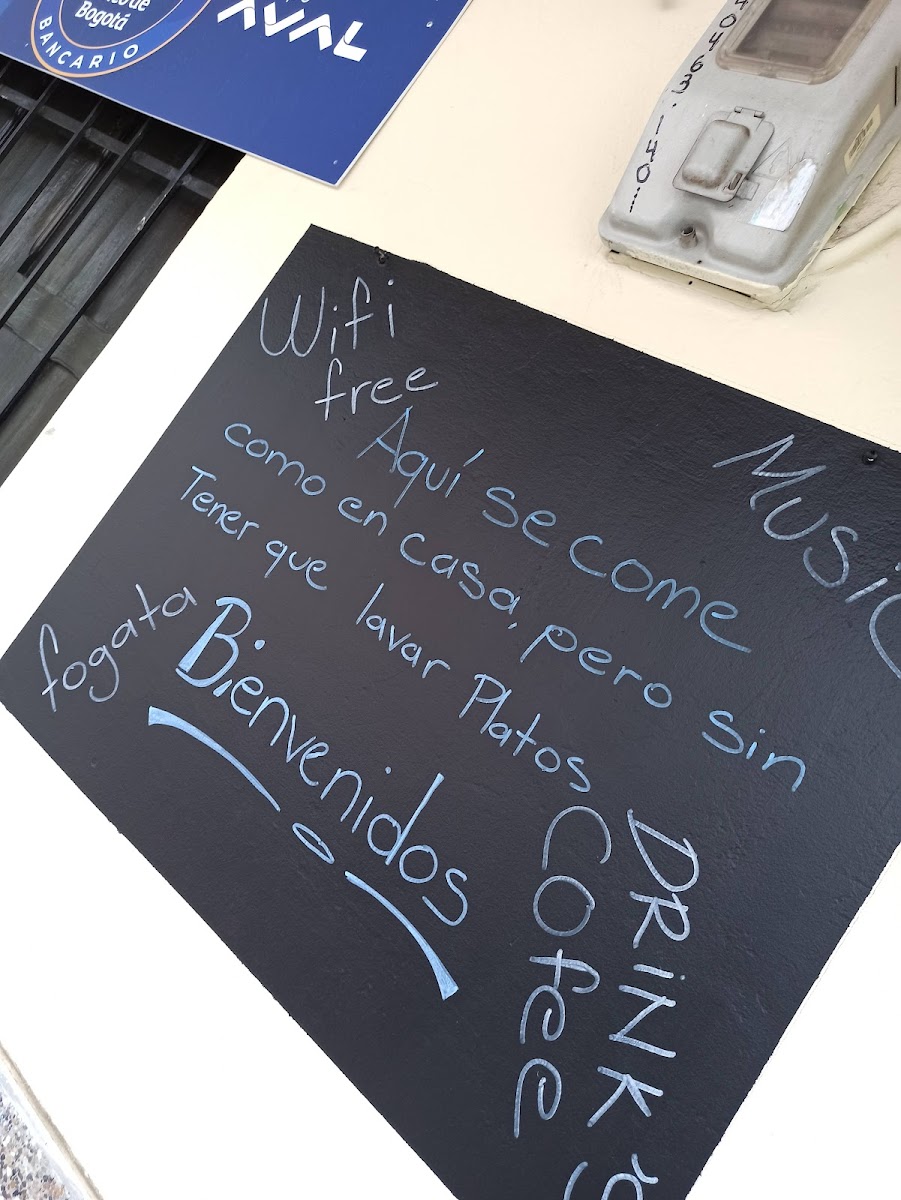 de
Bogotá
BANCARIO
AVAL
40463:140:
Wifi
free
Music
Aquí se come
como en casa, pero sin
Tener que lavar Platos
fogata
Bienvenidos
DRiNKS
COfee